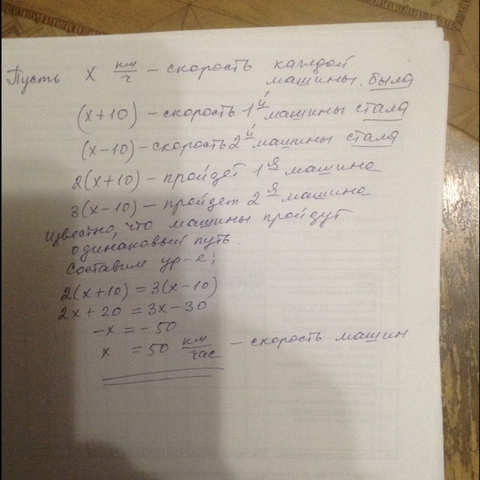 Пусть x км/ч – скорость каждой
машины была
(x+10) – скорость 1й машины стала
(x-10) – скорость 2й машины стала
2(x+10) – пройдёт 1я машина
3(x-10) – пройдет 2я машина
Известно, что машины пройдут
одинаковый путь.
Составим ур-е:
2(x+10) = 3(x-10)
2x + 20 = 3x - 30
-x = -50
x = 50 км/час – скорость машин